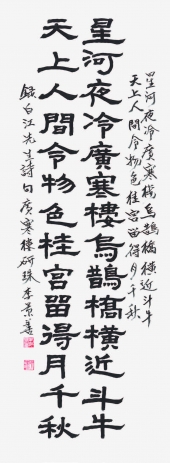 星河夜冷廣寒樓烏鵲橋橫近斗牛
天上人間令物色桂宮留得月千秋
星河夜冷廣寒樓烏鵲橋橫近斗牛
天上人間令物色桂宮留得月千秋
錄白江先生詩句廣寒樓研珠李景善